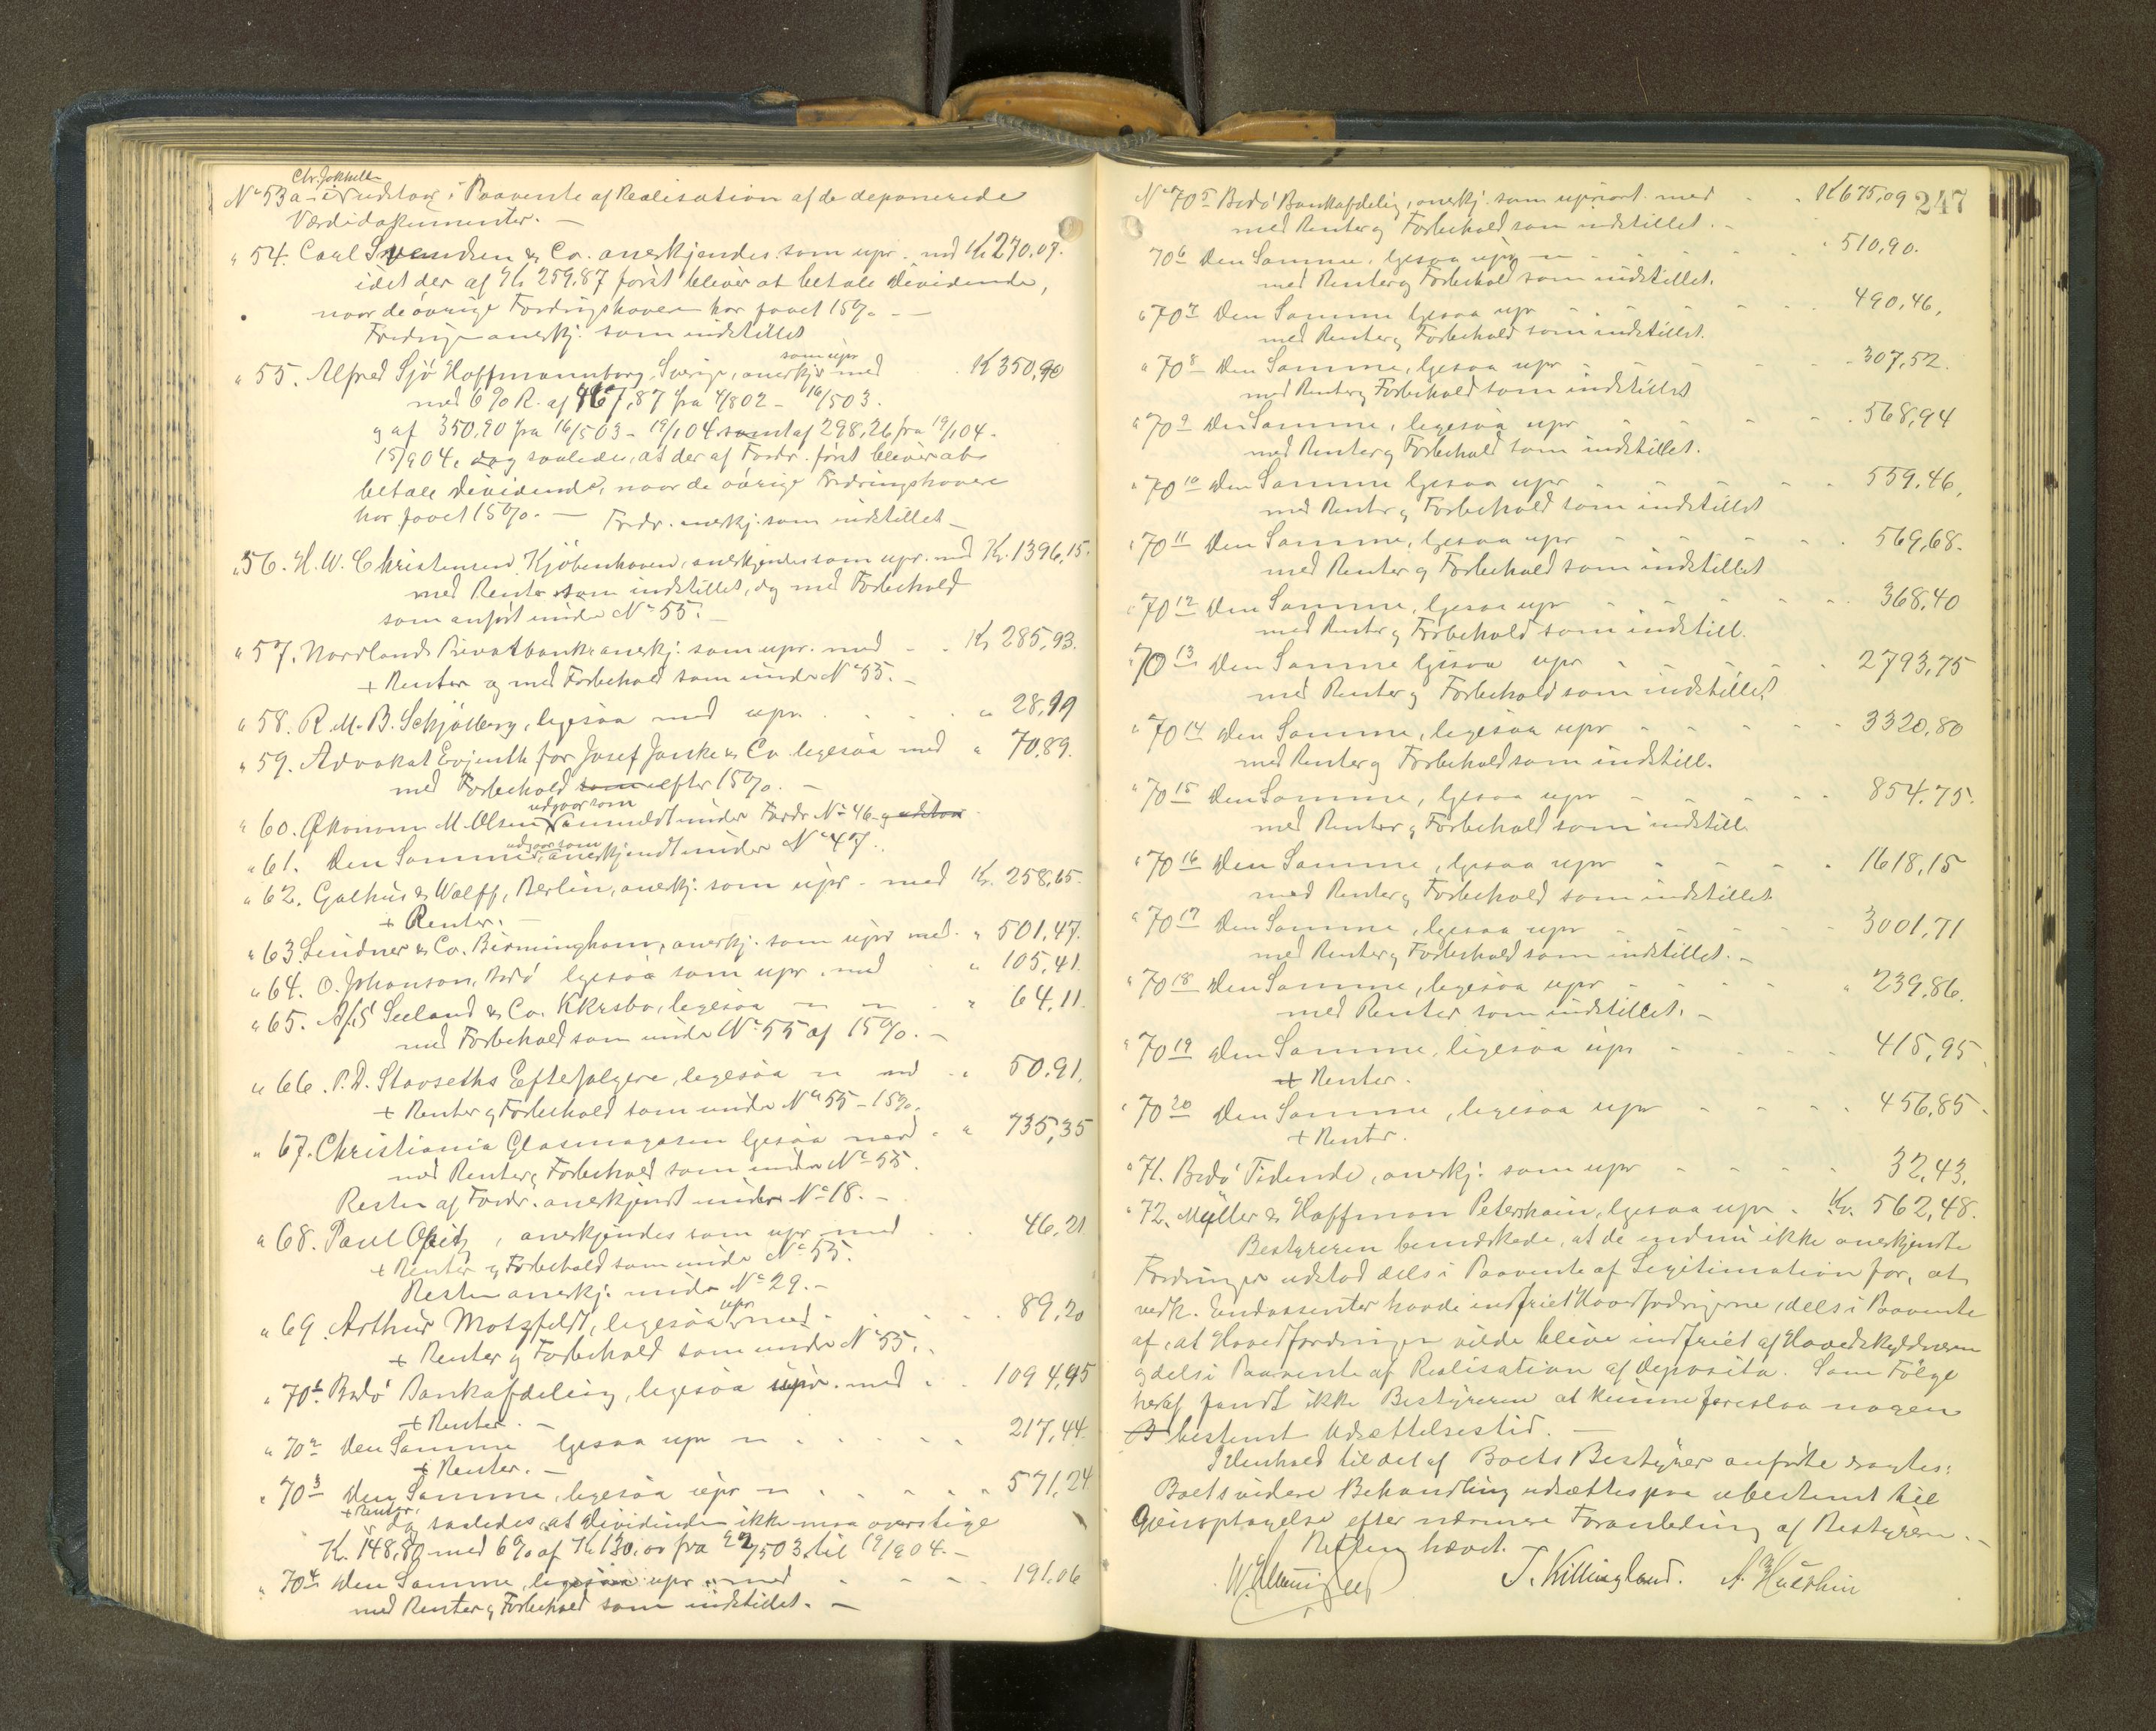 Nº 53 a - i udstaar i Paavente af Realisation af de deponerede
Værdidokumenter. —
" 54. Carl Svendsen & Co. anerkjendes som upr. med Kr 270.07.
idet der af Kr 259.87 først bliver at betale Dividende,
naar de øvrige Fordringshavere har faaet 15 % — —
Fordringen anerkj. som indstillet
som upr
" 55. Alfred Sjö Hoffmannstorg, Sverige, anerkj. med . K 350,90
med 6 % R. af 467,87 fra 4/802 - 16/503.
og af 350,90 fra 16/503 - 19/104 samt af 298,26 fra 19/104 -
15/904, dog saaledes, at der af Fordr. først bliver at
betale Dividende, naar de øvrige Fordringshavere
har faaet 15 %. — Fordr. anerkj. som indstillet —
" 56. H. W. Christensen, Kjøbenhavn, anerkjendes som upr. med Kr. 1396,15.
med Renter som indstillet, og med Forbehold
som anført under Nº 55. —
" 57. Nordlands Privatbank anerkj. som upr. med - . Kr 285,93.
+ Renter og med Forbehold som under Nº 55. —
" 58. R. M. B. Schjølberg, ligesaa med upr. . . . . " 28,99
" 59. Advokat Evjenth for Josef Janke & Co ligesaa med " 70,89.
med Forbehold som efter 15 %. —
udgaar som
" 60. Økonom M. Olsen anmeldt under Fordr Nº 46 - g udstaar
udgaar som
" 61. Den Samme, anerkjendt under Nº 47.
" 62. Galhus & Wolff, Berlin, anerkj. som upr - med Kr. 258,65.
+ Renter. —
" 63. Lindner & Co. Birmingham, anerkj. som upr med - " 501,47.
" 64. O. Johanson, Bodø ligesaa som upr. med . " 105,41.
" 65. A/S Seeland & Co. ligesaa — — . " 64,11.
med Forbehold som under Nº 55 af 15 %. —
" 66. P. D. Stavseths Efterfølgere, ligesaa — med - " 50.91.
+ Renter og Forbehold som under Nº 55 - 15 %.
" 67. Christiania Glasmagasin ligesaa med . " 735,35
med Renter og Forbehold som under Nº 55.
Resten af Fordr. anerkjendt under Nº 18. —
" 68. Paul Opitz, anerkjendes som upr med . . 46,21
+ Renter og Forbehold som under Nº 55.
Resten anerkj. under Nº 29. —
upr
" 69. Arthur Motzfeldt, ligesaa med . . . . 89,20
+ Renter og Forbehold som under Nº 55. .
" 70¹ Bodø Bankafdeling, ligesaa upr. med . . 1094,95
+ Renter. —
" 70² Den Samme ligesaa upr — . . . . . 217,44.
+ Renter. —
" 70³ Den Samme, ligesaa upr — . . . . " 571,24
+ Renter.
dog saaledes, at Dividenden ikke maa overstige
K. 148,80 med 6 % af K 130,00 fra 22/503 til 19/904. —
" 70⁴ Den Samme, ligesaa upr. med . . . . 191,06
med Renter og Forbehold som indstillet. —
247
Nº 70⁵ Bodø Bankafdelig, anerkj. som upriorit. med - . K 675,09
med Renter og Forbehold som indstillet. -
70⁶ Den Samme, ligesaa upr — . . . " 510,90.
med Renter og Forbehold som indstillet.
" 70⁷ Den Samme ligesaa upr . . . . 490,46,
med Renter og Forbehold som indstillet.
" 70⁸ Den Samme, ligesaa upr - - - - - 307,52.
med Renter og Forbehold som indstillet
" 70⁹ Den Samme, ligesaa upr - - - . 568,94
med Renter og Forbehold som indstillet.
" 70¹⁰ Den Samme ligesaa upr . - - - - 559,46,
med Renter og Forbehold som indstillet
" 70¹¹ Den Samme, ligesaa upr - - - . . 569,68.
med Renter og Forbehold som indstillet
" 70¹² Den Samme, ligesaa upr - - - - - 368,40
med Renter og Forbehold som indstill.
" 70¹³ Den Samme ligesaa upr - - - - . 2793,75
med Renter og Forbehold som indstillet
" 70¹⁴ Den Samme, ligesaa upr - - - - - 3320,80
med Renter og Forbehold som indstill.
" 70¹⁵ Den Samme, ligesaa upr - - - - 854,75.
med Renter og Forbehold som indstill.
" 70¹⁶ Den Samme, ligesaa upr - - - . 1618,15
med Renter og Forbehold som indstillet
" 70¹⁷ Den Samme, ligesaa upr - - - - 3001,71
med Renter og Forbehold som indstillet. —
" 70¹⁸ Den Samme, ligesaa upr - - - - " 239,86.
med Renter som indstillet. —
" 70¹⁹ Den Samme, ligesaa upr - - - - 415,95
+ Renter.
" 70²⁰ Den Samme, ligesaa upr - - - - 456,85 -
+ Renter.
" 71. Bodø Tidende, anerkj. som upr - - - - 32,43.
" 72. Müller & Hoffman Petershain, ligesaa upr - Kr. 562,48.
Bestyreren bemærkede, at de endnu ikke anerkjendte
Fordringer udstod dels i Paavente af Legitimation for, at
vedk. Endossenter havde indfriet Hovedfordringerne, dels i Paavente
af, at Hovedfordringen vilde blive indfriet af Hovedskyldneren
og dels i Paavente af Realisation af Deposita. Som Følge
heraf fandt ikke Bestyreren at kunne foreslaa nogen
bestemt Udsættelsestid. —
I Henhold til det af Boets Bestyrer anførte toges:
Boets videre Behandling udsættes paa ubestemt til
Gjenoptagelse efter nærmere Foranledning af Bestyreren. —
Retten hævet.
J. Killingland.